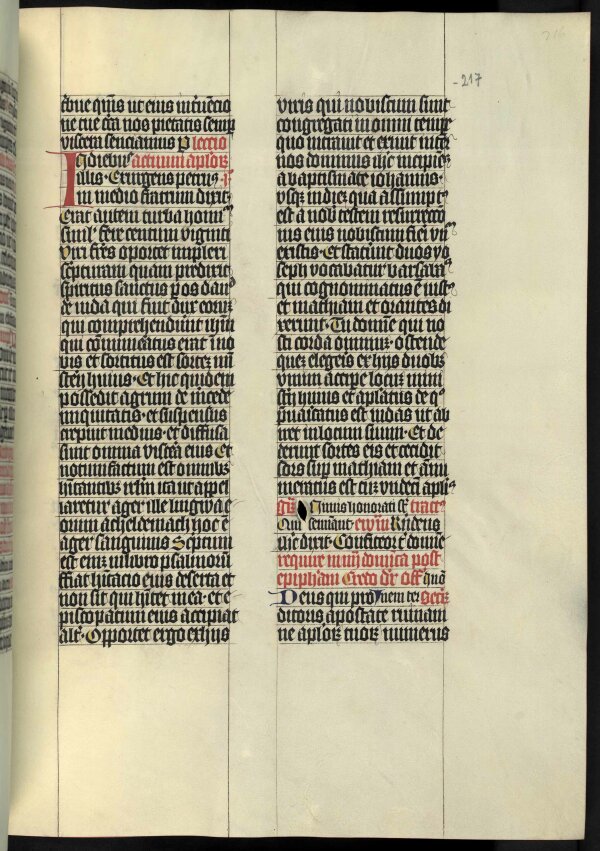 -217
216
cione quis ut eius intervencio
ne tue circa nos pietatis semper
viscera senciamus Per lectio
In diebus actuum aplorum
illis. Exurgens petrus
in medio fratrum dixit
Erat autem turba homi
simul fere centum viginti
Viri fres oportet impleri
scripturam quam predixit
spiritus sanctus per os dauid
de iuda qui fuit dux eorum
qui comprehenderunt ihm
qui connumeratus erat in no
bis et sortitus est sortem mi
sterij huius. Et hic quidem
possedit agrum de mercede
iniquitatis. et suspensus
crepuit medius. et diffusa
sunt omnia viscera eius Et
notum factum est omnibus
habitantibus ierlm ita ut appel
laretur ager ille lingwa e
orum acheldemach hoc e
ager sanguinis Scriptum
est eni in libro psalmorum
ffiat habitacio eius deserta et
non sit qui habitet in ea. et e
piscopatum eius accipiat
alter. Opportet ergo ex hijs
viris qui nobiscum sunt
congregati in omni tempe
quo intrauit et exiuit inter
nos dominus ihc incipiens
a baptismate iohannis.
vsque in diem qua assumptus
est a nobis testem resurrecco
nis eius nobiscum fieri vnum
ex istis. Et statuerunt duos yo
seph vocabatur barsabas
qui cognominatus e iustus
et mathiam et orantes di
xerunt. Tu domine qui no
sti corda omnium. ostende
quem elegeris ex hijs duobus
vnum accipe locum mini
sterij huius et aplatus de quo
preuaricatus est iudas ut ab
iret in locum suum. Et de
derunt sortes eis et cecidit
sors super mathiam et annu
meratus est cum vndecim apli
Nimis honorati st tractus
Qui seminant. ewm Respondens
ihc dixit. Confiteor t domine
require in iiij dominica post
epiphaniam Credo dr off
Deus qui pro Secr
ditoris apostate ruinam
ne aplorum tuorum numerus